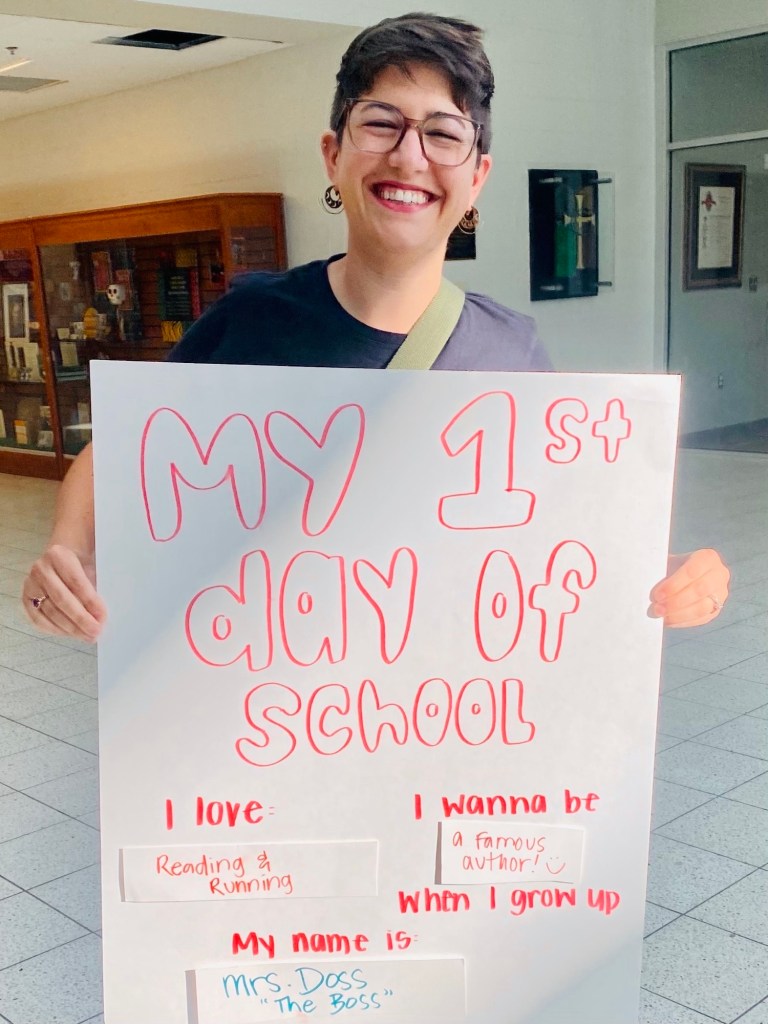 My 1st
day of
school
I love:
Reading &
Running
I wanna be
a famous
author! :)
when I grow up
My name is:
Mrs. Doss
"The Boss"